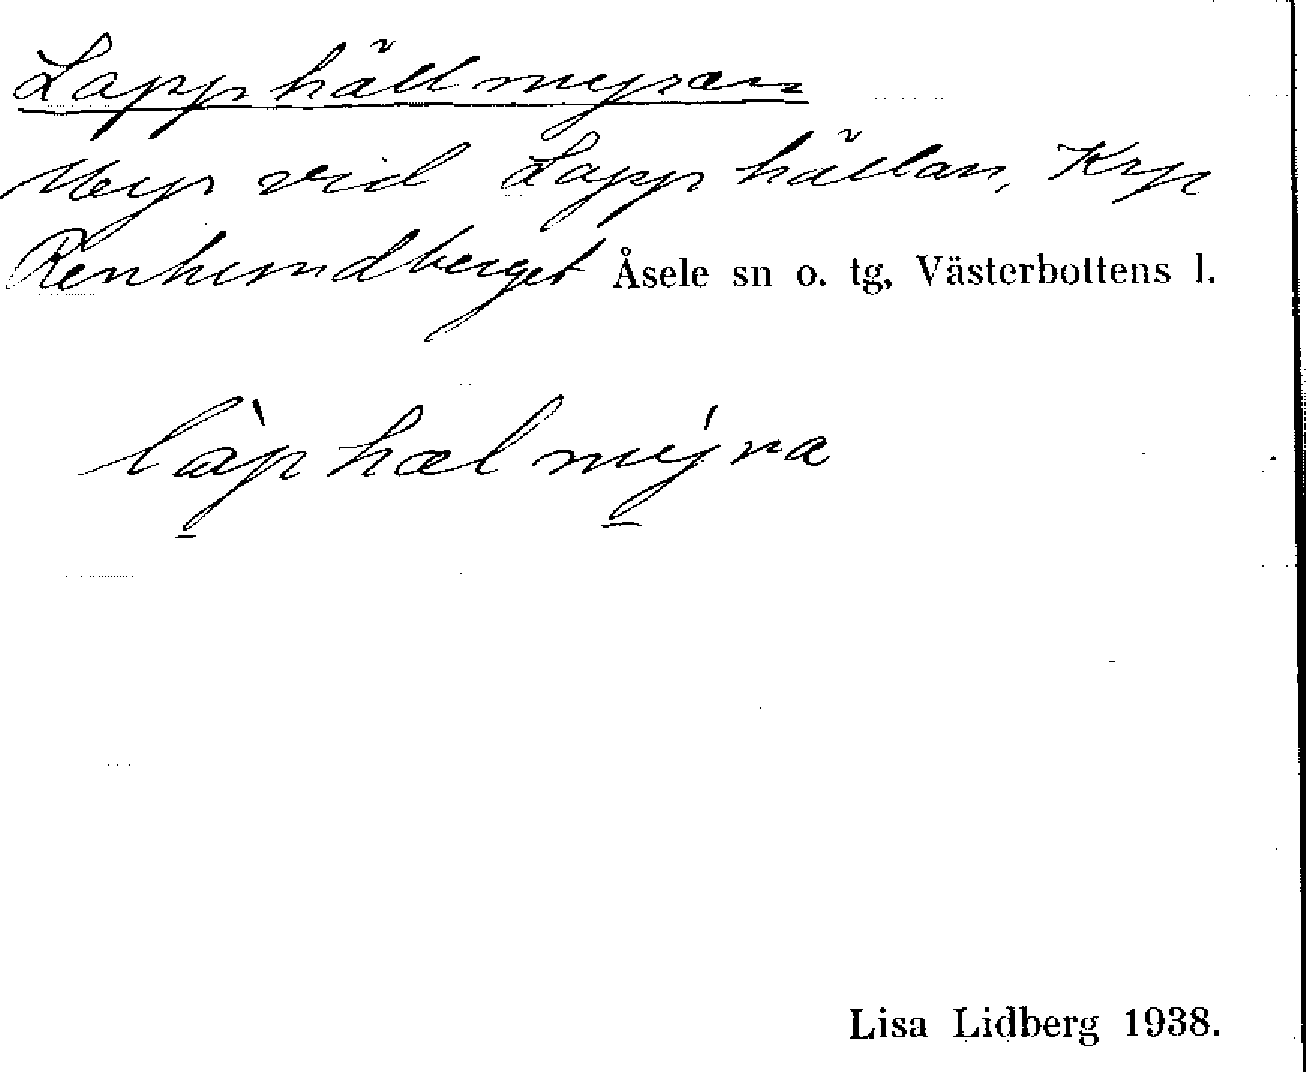 Lapphällmyran
Myr vid Lapphällan, Krp
Renhundberget Åsele sn o. tg, Västerbottens l.
làphælmýra
Lisa Lidberg 1938.